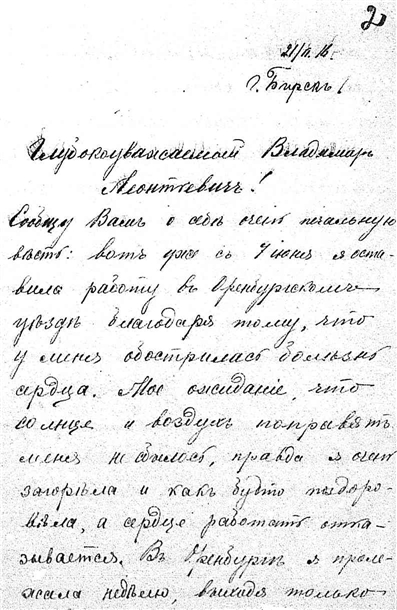 2
21/II.16.
г. Бирскъ
Глубокоуважаемый Владимиръ
Леонтьевичъ!
Сообщу Вамъ о себѣ очень печальную
вѣсть: вотъ уже съ 7 июня я оста-
вила работу въ Оренбургскомъ
уѣздѣ благодаря тому, что
у меня обострилась болѣзнь
сердца. Мое ожиданіе, что
солнце и воздухъ поправятъ
меня не сбылось, правда я очень
загорѣла и какъ будто поздоро-
вѣла, а сердце работать отка-
зывается. Въ Оренбургѣ я проле-
жала недѣлю, выходя только